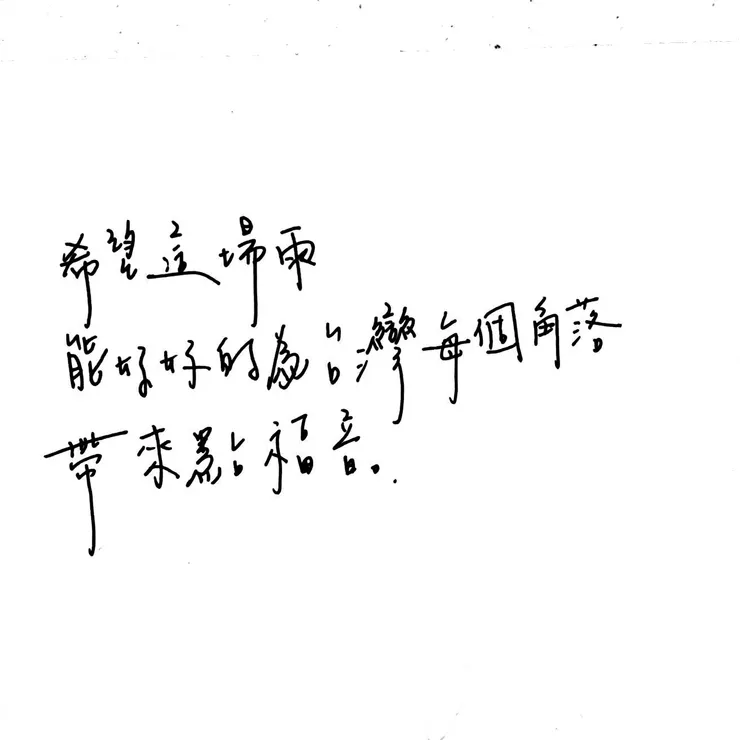 希望這場雨
能好好的為台灣每個角落
帶來點福音。